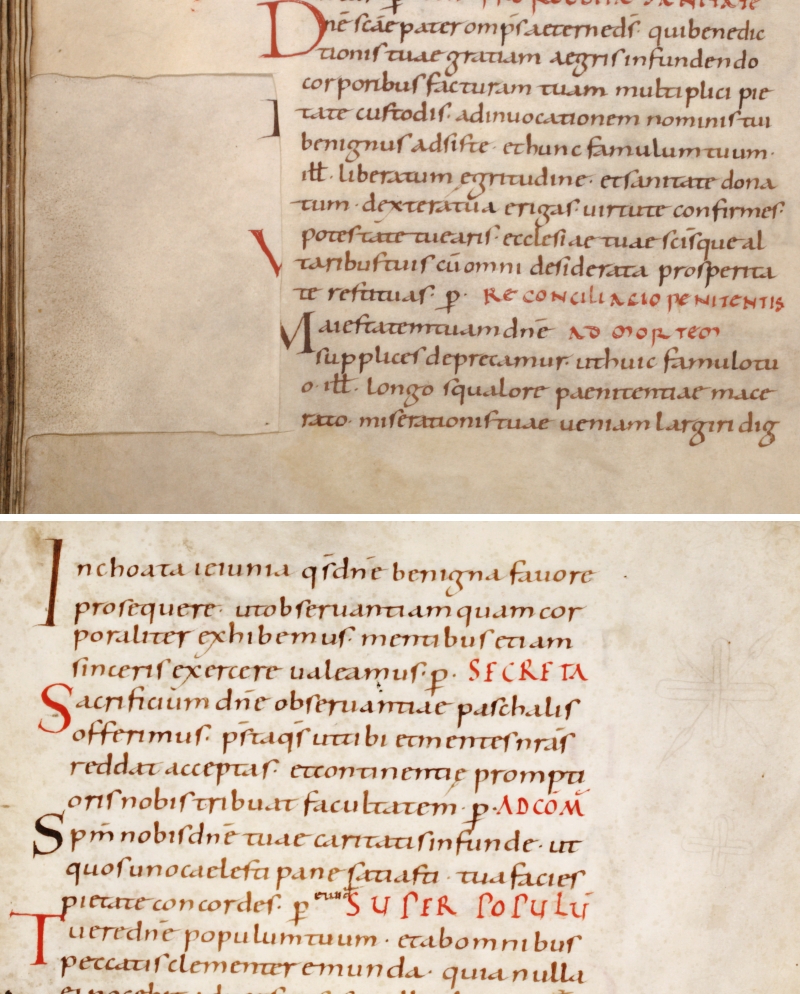 Dn̄e sc̄ae pater omp̄s aeterne ds̄· qui benedic
tionis tuae gratiam aegris infundendo
corporibus facturam tuam multiplici pie
tate custodis· ad inuocationem nominis tui
benignus adsiste· et hunc famulum tuum·
ill̄· liberatum egritudine· et sanitate dona
tum· dextera tua erigas· uirtute confirmes·
potestate tuearis· ecclesiae tuae sc̄isque al
taribus tuis cū omni desiderata prosperita
te restituas· p̲· RECONCILIACIO PENITENTIS
Maiestatem tuam dn̄e AD MORTEM
supplices deprecamur· ut huic famulo tu
o· ill̄· longo squalore paenitentiae mace
rato· miserationis tuae ueniam largiri dig
Inchoata ieiunia qs̄ dn̄e benigna fauore
prosequere· ut obseruantiam quam cor
poraliter exhibemus· mentibus etiam
sinceris exercere ualeamus· p̲· SECRETA
Sacrificium dn̄e obseruantiae paschalis
offerimus· p̄sta qs̄ ut tibi et mentes nr̄as
reddat acceptas· et continentię prompti
oris nobis tribuat facultatem· p̲· AD COM̄
Spm̄ nobis dn̄e tuae caritatis infunde· ut
quos uno caelesti pane satiasti· tua facies
pietate concordes· p̲ SUPER POPULŪ
Tuere dn̄e populum tuum· et ab omnibus
peccatis clementer emunda· quia nulla